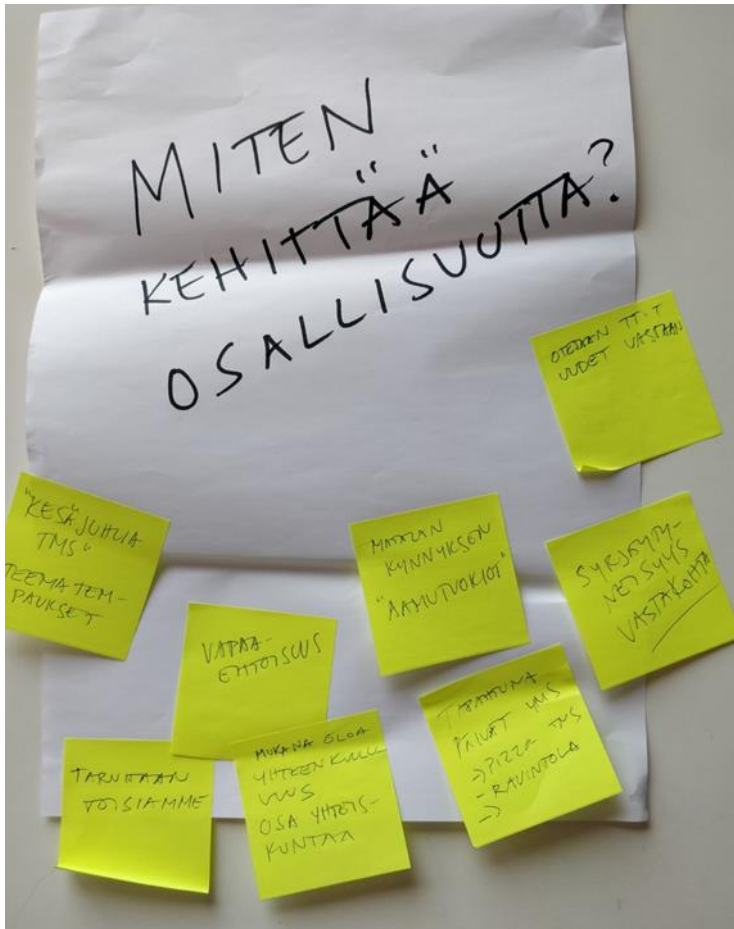 MITEN
KEHITTÄÄ
OSALLISUUTTA?
OTETAAN TT:T
UUDET VASTAAN
"KESÄJUHLIA
TMS"
TEEMATEM-
PAUKSET
MATALAN
KYNNYKSEN
"AAMUTUOKIOT"
SYRJÄYTY-
NEISYYS
VASTAKOHTA
VAPAA-
EHTOISUUS
TAPAHTUMA
PÄIVÄT YMS
-> PIZZA TMS
- RAVINTOLA
->
TARVITAAN
TOISIAMME
MUKANA OLOA
YHTEENKUULU
VUUS
OSA YHTEIS-
KUNTAA